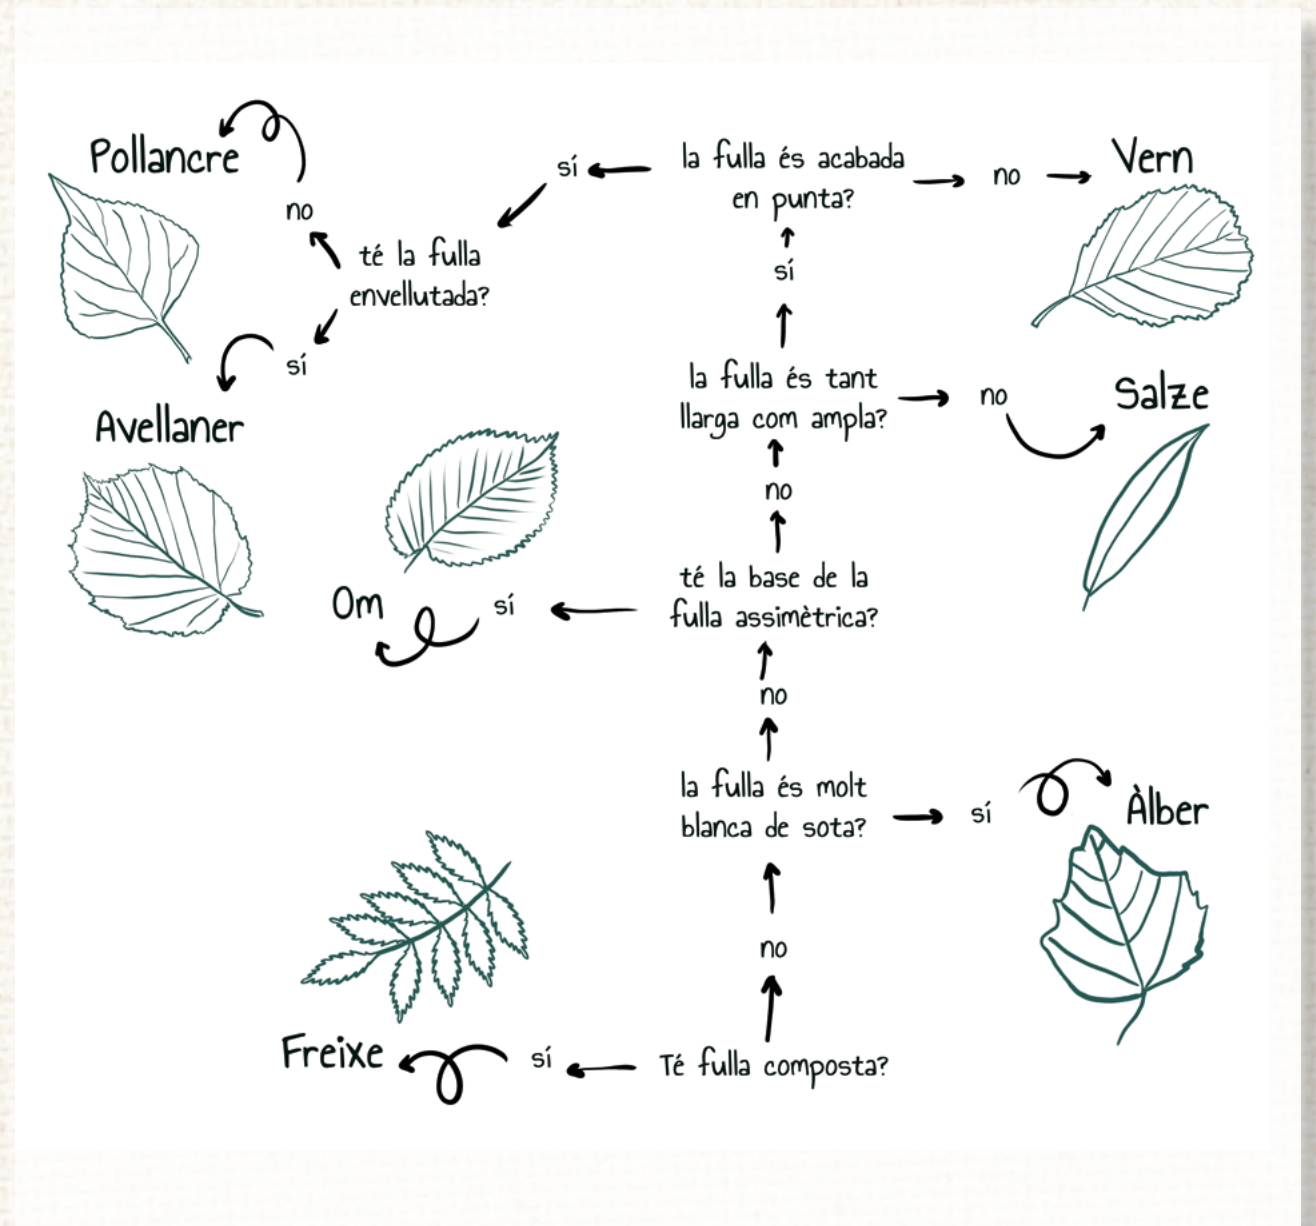 Pollancre
no
té la fulla
envellutada?
sí
Avellaner
sí
la fulla és acabada
en punta?
no
Vern
sí
la fulla és tant
llarga com ampla?
no
Salze
no
té la base de la
fulla assimètrica?
sí
Om
no
la fulla és molt
blanca de sota?
sí
Àlber
no
Té fulla composta?
sí
Freixe